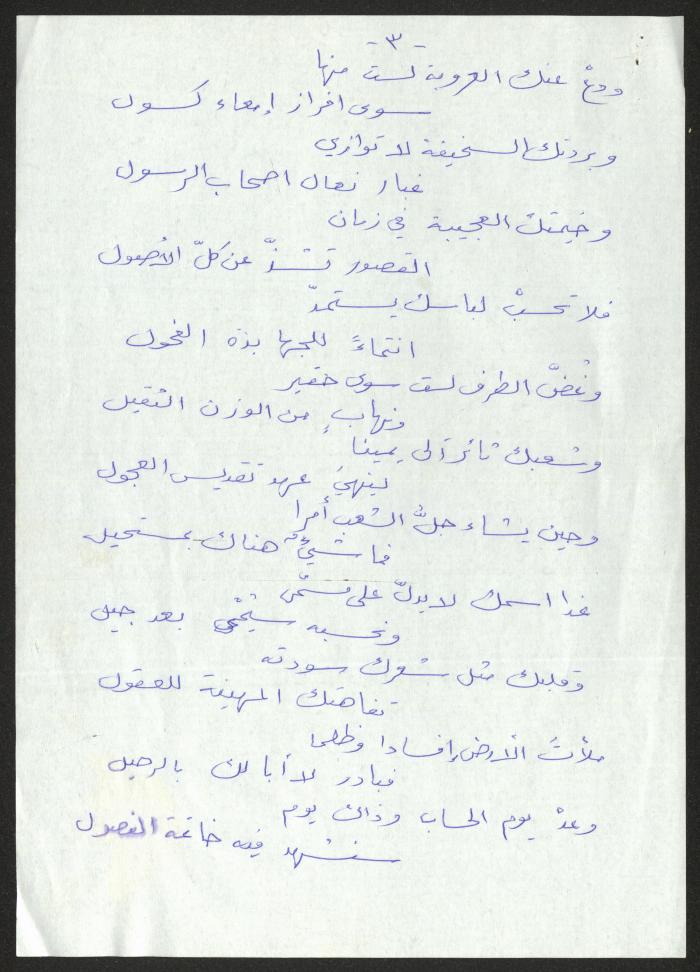 - ٣ -
ودعْ عنك العروبة لست منها
سوى افراز إمعاء كسول
وبردتك السخيفة لا توازي
غبار نعال اصحاب الرسول
وخيمتك العجيبة في زمان
القصور تشذّ عن كلّ الأصول
فلا تحسبْ لباسك يستمدّ
انتماءً للجها بذة الفحول
وغُضّ الطرف لست سوى حقير
ونهابٍ من الوزن الثقيل
وشعبك ثائر آلى يمينا
لينهيَ عهد تقديس العجول
وحين يشاء جلُّ الشعب أمرا
فما شيءٌ هناك بمستحيل
غدا اسمك لا يدلّ على مسمّى
ونحسبه سيُمحى بعد جيل
وقلبك مثل شعرك سودته
تفاهتك المهينة للعقول
ملأتَ الأرض إفسادا وظلما
فبادر لا أبا لك بالرحيل
وعدْ يوم الحساب وذاك يوم
سنشهد فيه خاتمة الفصول